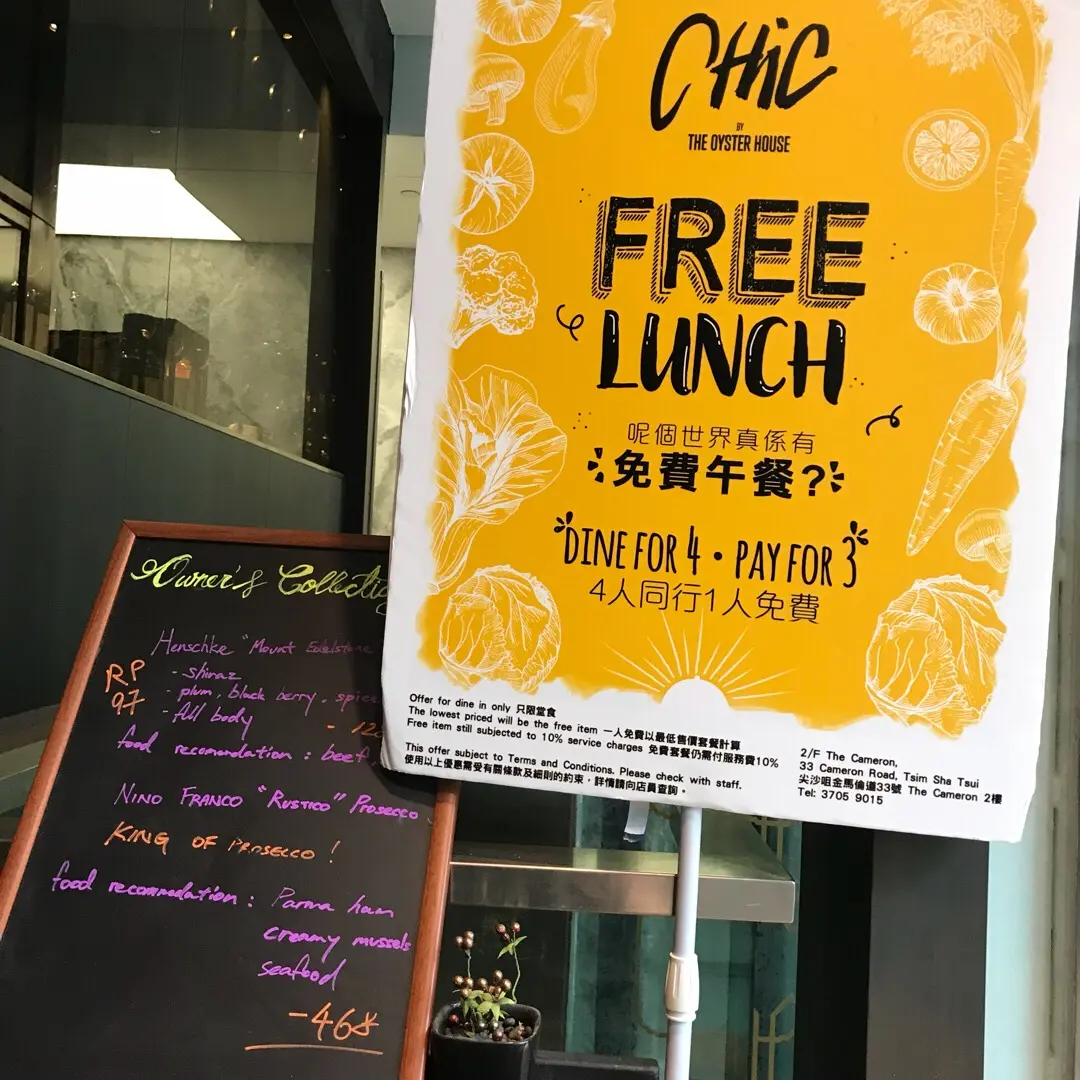 CHiC
BY
THE OYSTER HOUSE
FREE
LUNCH
呢個世界真係有
免費午餐?
DINE FOR 4 • PAY FOR 3
4人同行1人免費
Offer for dine in only 只限堂食
The lowest priced will be the free item 一人免費以最低售價套餐計算
Free item still subjected to 10% service charges 免費套餐仍需付服務費10%
This offer subject to Terms and Conditions. Please check with staff.
使用以上優惠需受有關條款及細則的約束，詳情請向店員查詢。
2/F The Cameron,
33 Cameron Road, Tsim Sha Tsui
尖沙咀金馬倫道33號 The Cameron 2樓
Tel: 3705 9015
Owner's Collectio
Henschke "Mount Edelstone"
RP
97
- shiraz
- plum, black berry, spice
- full body
food recomondation : beef,
NINO FRANCO "RUSTICO" PROSECCO
KING OF PROSECCO !
food recommodation : Parma ham
creamy mussels
seafood